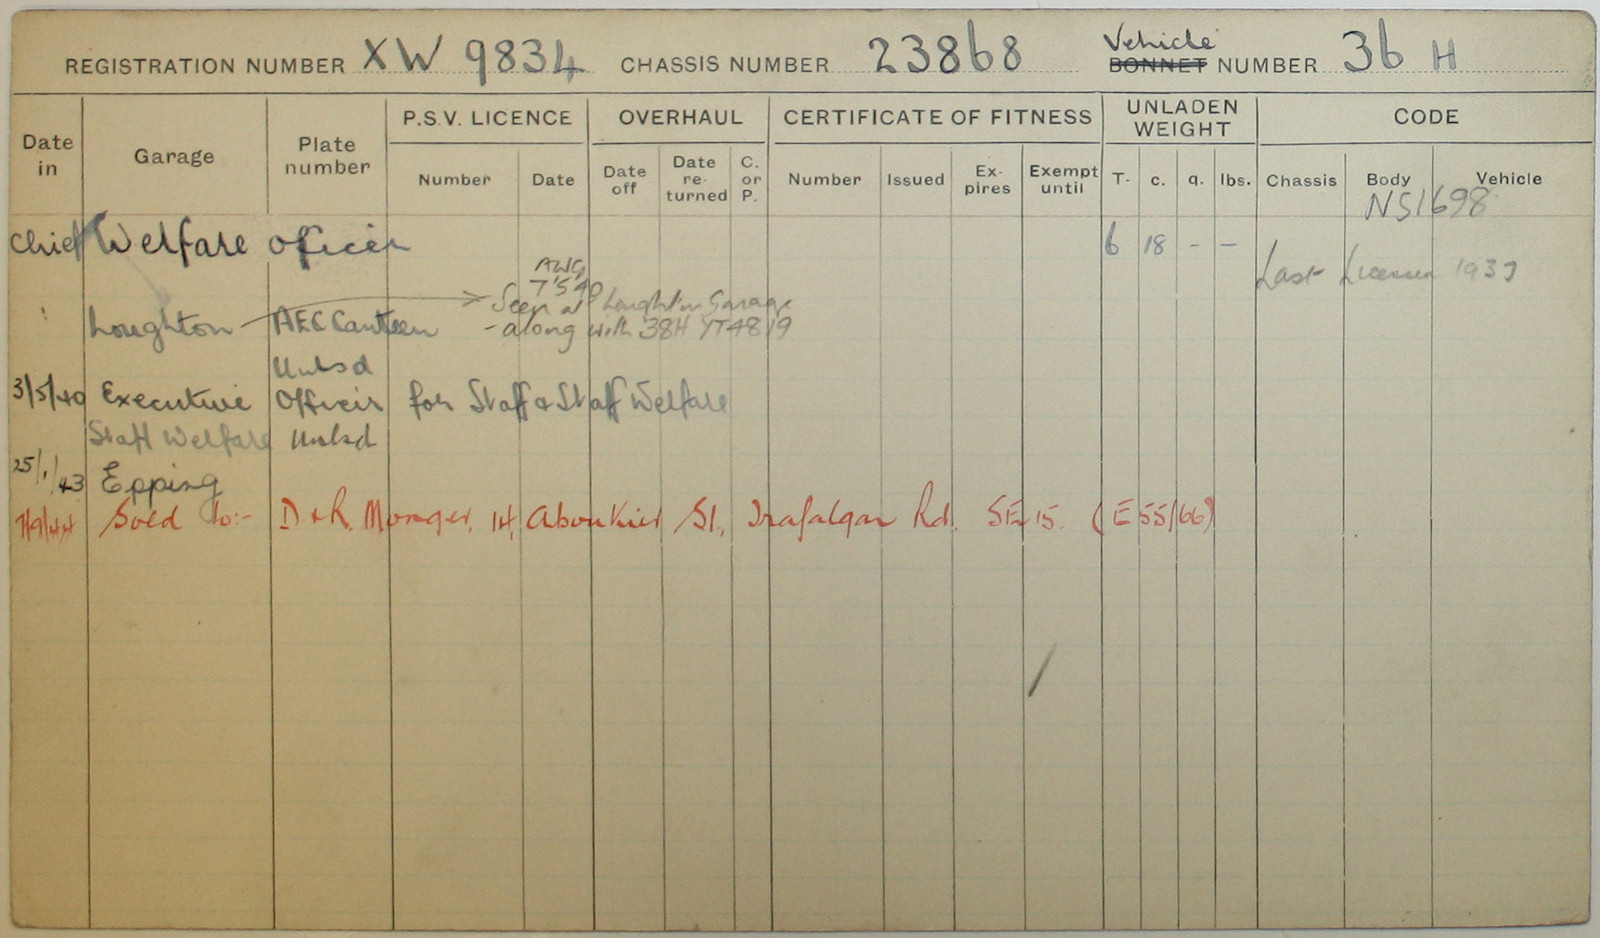 REGISTRATION NUMBER XW 9834 CHASSIS NUMBER 23868 Vehicle BONNET NUMBER 36 H
Date in Garage Plate number P.S.V. LICENCE OVERHAUL CERTIFICATE OF FITNESS UNLADEN WEIGHT CODE
Number Date Date off Date re-turned C. or P. Number Issued Ex-pires Exempt until T. c. q. lbs. Chassis Body Vehicle
NS1698
Chief Welfare Officer 6 18 - -
Last Licence 1937
AWG
7'5'40
Seen at Loughton Garage
Loughton AEC Canteen - along with 38H YT4819
Unlsd
3/5/40 Executive Officer for Staff & Staff Welfare
Staff Welfare Unlsd
25/1/43 Epping
7/9/44 Sold to:- D & R. Monger, 14, Aboukier St, Trafalgar Rd. SE 15. (E55/66)